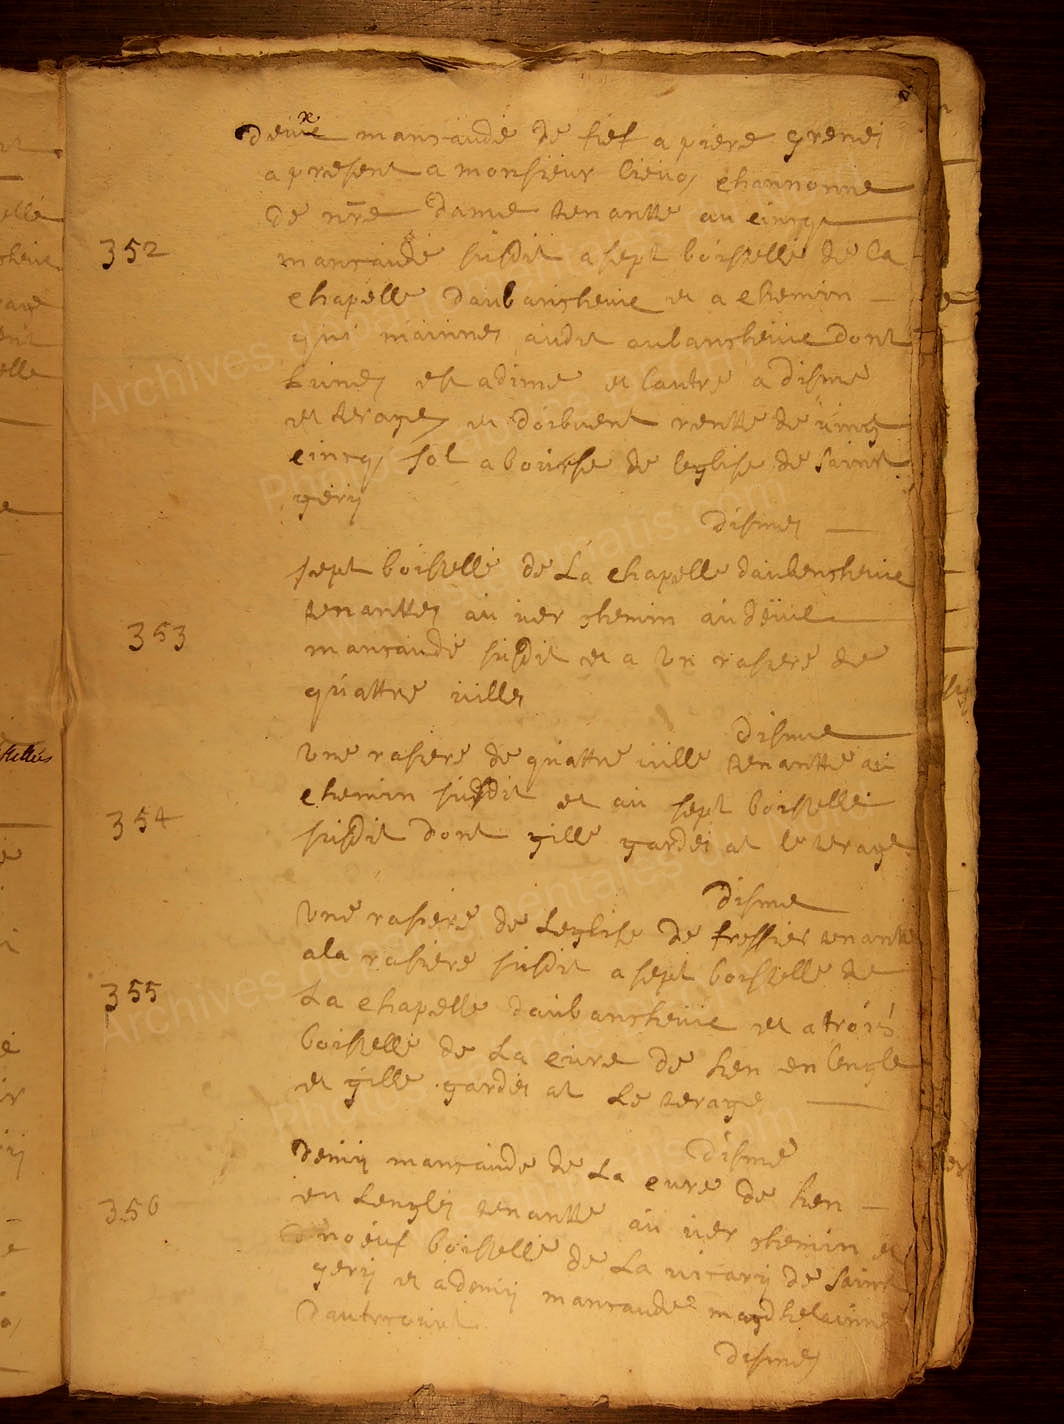 deuxe mancaude de fief a piere grenei
a present a monsieur lievos channonne
de nre dame tenantte au cincqs
352
mancaude susdit a sept boistelle de la
chapelle daubancheuie et a chemin
qui mainnes audit aubancheuie dont
lunes est a dime et lautre a disme
et terages et doibuent rentte de vingt
cincqs sol a bourse de leglise de saint
gery
dismes
sept boistelle de la chapelle daubencheuie
tenanttes au uer chemin au deuue
353
mancaude susdit et a un rasiere de
quattre uilles
disme
une rasiere de quattre uille tenantte au
chemin susdit et au sept boistelle
354
susdit dont gille gardes at le terage
disme
une rasiere de leglise de fressies tenantte
a la rasiere susdit a sept boistelle de
355
la chapelle daubancheuie et a trois
boistelle de la cure de hen en lengle
et gille gardes at le terage
disme
demy mancaude de la cure de hen
356
en lengles tenantte au uer chemin et
noeuf boistelle de la uicary de saint
gery et a demy mancaude magdhelainne
dautrcourt
dismes